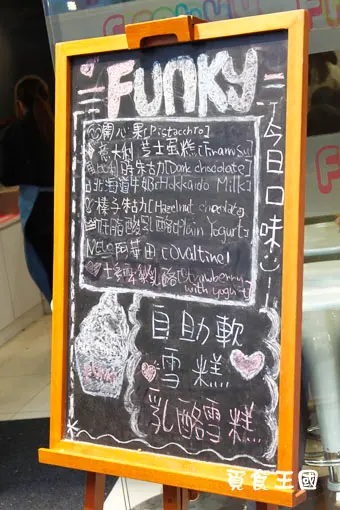 FUNKY
今日口味
開心果[Pistacchio]
義大利芝士蛋糕[Tiramisu]
朱古力[Dark chocolate]
北海道牛奶[Hokkaido Milk]
榛子朱古力[Hazelnut chocolate]
低脂酸乳酪[Plain Yogurt]
阿華田[Ovaltine]
士多啤梨乳酪[Strawberry
with yogurt]
自助軟
雪糕
乳酪雪糕
覓食王國